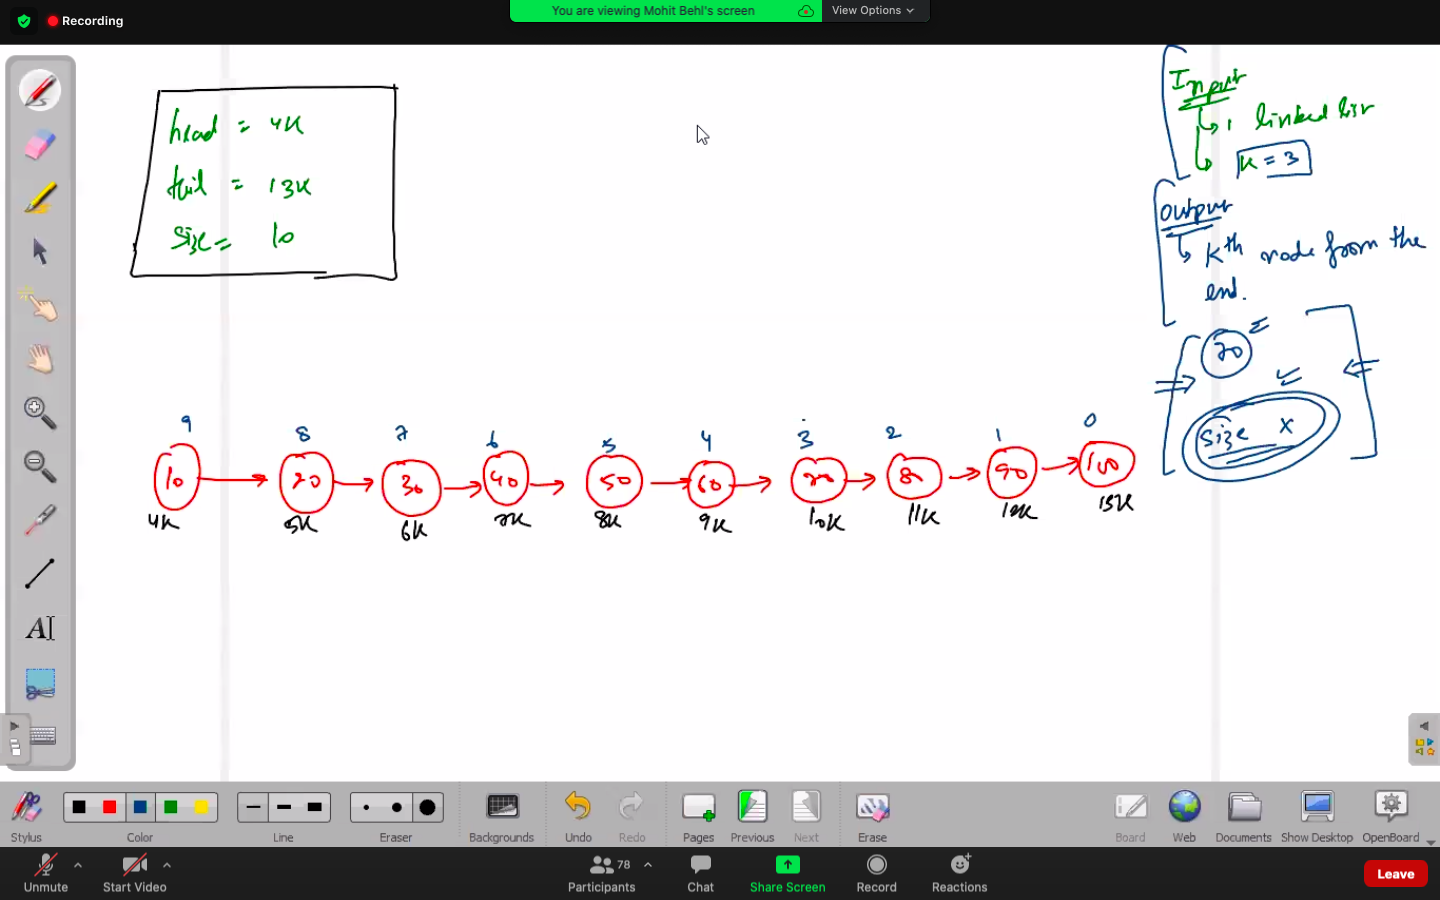 Recording
You are viewing Mohit Behl's screen
View Options
head = 4K
tail = 13K
Size = 10
Input
1 linked list
K = 3
Output
Kth node from the
end.
70
Size X
9 8 7 6 5 4 3 2 1 0
10 20 30 40 50 60 70 80 90 100
4K 5K 6K 7K 8K 9K 10K 11K 12K 13K
Stylus
Color
Line
Eraser
Backgrounds
Undo
Redo
Pages
Previous
Next
Erase
Board
Web
Documents
Show Desktop
OpenBoard
Unmute
Start Video
78
Participants
Chat
Share Screen
Record
Reactions
Leave